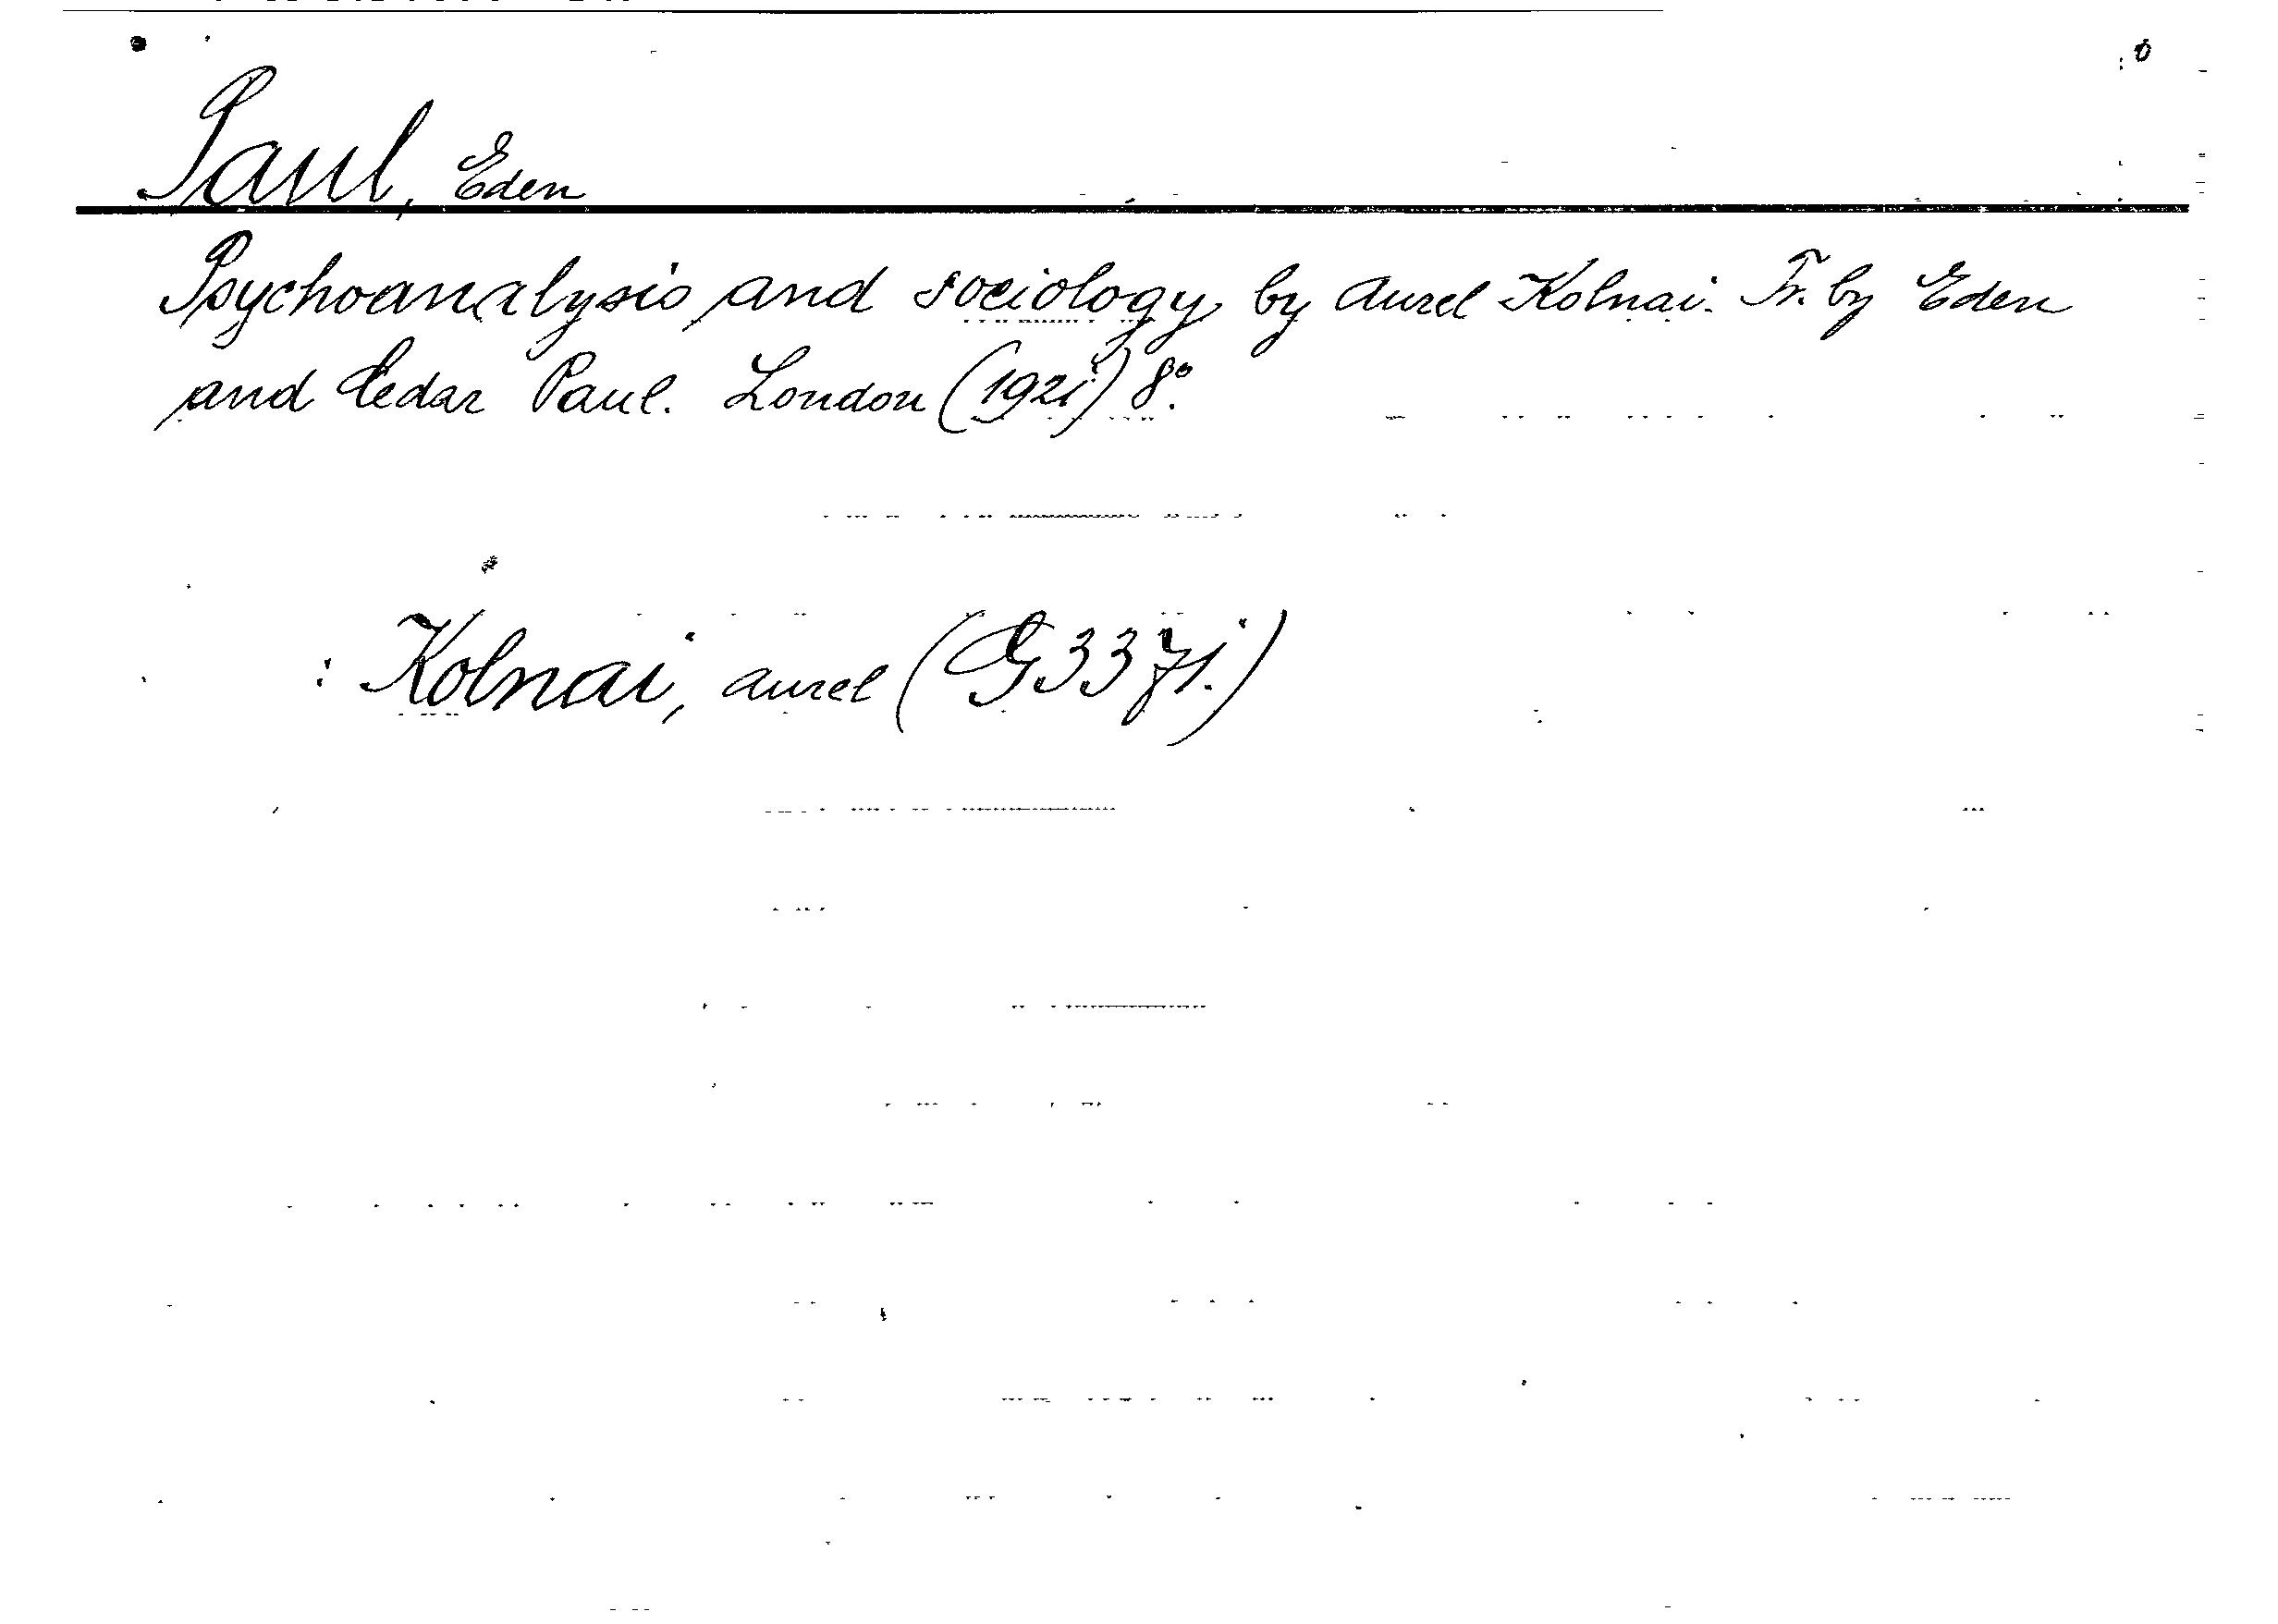 Paul, Eden
Psychoanalysis and sociology by Aurel Kolnai. Tr. by Eden
and Cedar Paul. London (1921) 8°.
: Kolnai, Aurel (G3371.)